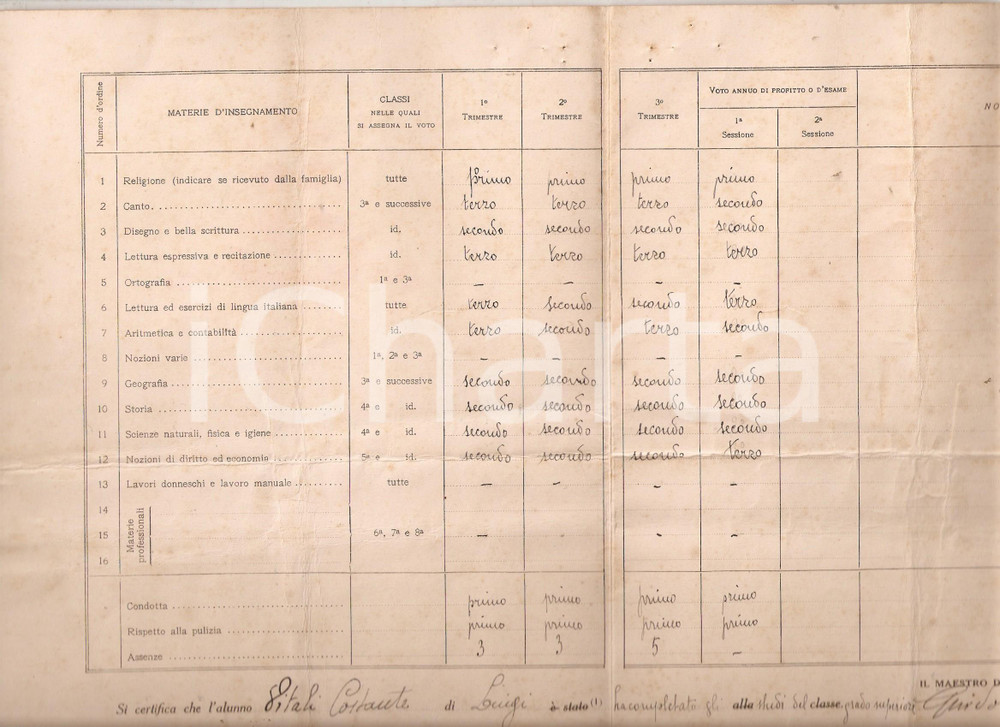 Numero d'ordine | MATERIE D'INSEGNAMENTO | CLASSI NELLE QUALI SI ASSEGNA IL VOTO | 1º TRIMESTRE | 2º TRIMESTRE | 3º TRIMESTRE | VOTO ANNUO DI PROFITTO O D'ESAME | 1ª Sessione | 2ª Sessione | NO
1 Religione (indicare se ricevuto dalla famiglia) tutte primo primo primo primo
2 Canto. terzo 3ª e successive terzo terzo secondo
3 Disegno e bella scrittura id. secondo secondo secondo secondo
4 Lettura espressiva e recitazione id. terzo terzo terzo terzo
5 Ortografia 1ª e 3ª – – – –
6 Lettura ed esercizi di lingua italiana tutte terzo secondo secondo terzo
7 Aritmetica e contabilità id. terzo secondo terzo secondo
8 Nozioni varie 1ª, 2ª e 3ª – – – –
9 Geografia 3ª e successive secondo secondo secondo secondo
10 Storia 4ª e id. secondo secondo secondo secondo
11 Scienze naturali, fisica e igiene 4ª e id. secondo secondo secondo secondo
12 Nozioni di diritto ed economia 5ª e id. secondo secondo secondo terzo
13 Lavori donneschi e lavoro manuale tutte – – – –
14
15 Materie professionali 6ª, 7ª e 8ª – – –
16
Condotta primo primo primo primo
Rispetto alla pulizia primo primo primo primo
Assenze 3 3 5 –
IL MAESTRO D
Si certifica che l'alunno Vitali Costante di Luigi è stato (1) ha completato gli alla studi del classe, grado superiore Guido
iCharta